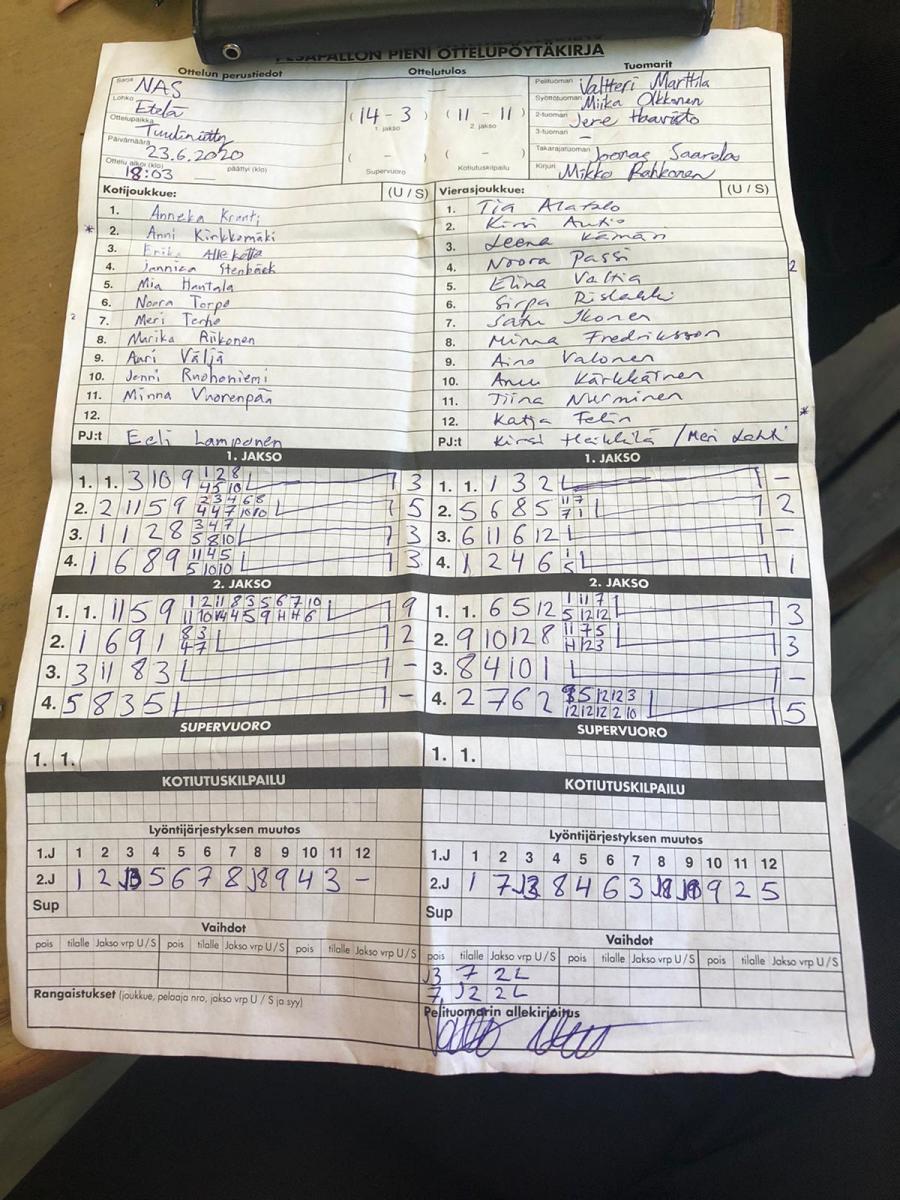 PESÄPALLON PIENI OTTELUPÖYTÄKIRJA
Ottelun perustiedot
Ottelutulos
Tuomarit
Sarja NAS
Lohko Etelä
Ottelupaikka
Päivämäärä 23.6.2020
Ottelu alkoi (klo) 18:03 päättyi (klo)
(14 - 3) 1. jakso
(11 - 11) 2. jakso
( - ) Supervuoro
( - ) Kotiutuskilpailu
Pelituomari Valtteri Marttila
Syöttötuomari Miika Olkkonen
2-tuomari Jere Haavisto
3-tuomari -
Takarajatuomari Joonas Saarelas
Kirjuri Mikko Rahkonen
Kotijoukkue: (U / S)
1. Anneka
* 2. Anni Kirkkomäki
3. Erika
4. Jannica Stenbäck
5. Mia Hantala
6. Noora Torpo
7. Meri Terho
8. Marika Riikonen
9. Auri Väljä
10. Jenni Ruohoniemi
11. Minna Vuorenpää
12.
PJ:t Eeli Lamponen
Vierasjoukkue: (U / S)
1. Tia Alatalo
2. Kirsi Autio
3. Leena Kämäri
4. Noora Passi
5. Elina Valtia
6. Sirpa Rislakki
7. Satu Ikonen
8. Minna Fredriksson
9. Aino Valonen
10. Anu Kärkkäinen
11. Tiina Nurminen
12. Katja Felin *
PJ:t Kirsi Heikkilä / Meri Lahti
1. JAKSO
1. 1. 3 10 9 1 2 8 4 5 10 3
2. 2 11 5 9 2 3 4 6 8 4 4 7 10 10 5
3. 1 1 2 8 3 4 7 5 8 10 3
4. 1 6 8 9 11 4 5 5 10 10 3
1. JAKSO
1. 1. 1 3 2 -
2. 5 6 8 5 11 7 7 1 2
3. 6 11 6 12 -
4. 1 2 4 6 1 5 1
2. JAKSO
1. 1. 11 5 9 1 2 11 8 3 5 6 7 10 9
2. 1 6 9 1 8 3 4 7 2
3. 3 11 8 3 -
4. 5 8 3 5 -
2. JAKSO
1. 1. 6 5 12 1 11 7 5 12 12 3
2. 9 10 12 8 11 7 5 3
3. 8 4 10 1 -
4. 2 7 6 2 5 12 12 3 12 12 12 2 10 5
SUPERVUORO
1. 1.
SUPERVUORO
1. 1.
KOTIUTUSKILPAILU
KOTIUTUSKILPAILU
Lyöntijärjestyksen muutos
1.J 1 2 3 4 5 6 7 8 9 10 11 12
2.J 1 2 J3 5 6 7 8 J8 9 4 3 -
Sup
Lyöntijärjestyksen muutos
1.J 1 2 3 4 5 6 7 8 9 10 11 12
2.J 1 7 J3 8 4 6 3 J8 9 2 5
Sup
Vaihdot
pois tilalle Jakso vrp U / S pois tilalle Jakso vrp U / S pois tilalle Jakso vrp U / S
Vaihdot
pois tilalle Jakso vrp U / S pois tilalle Jakso vrp U / S pois tilalle Jakso vrp U / S
J3 7 2L
7 J2 2L
Rangaistukset (joukkue, pelaaja nro, jakso vrp U / S ja syy)
Pelituomarin allekirjoitus